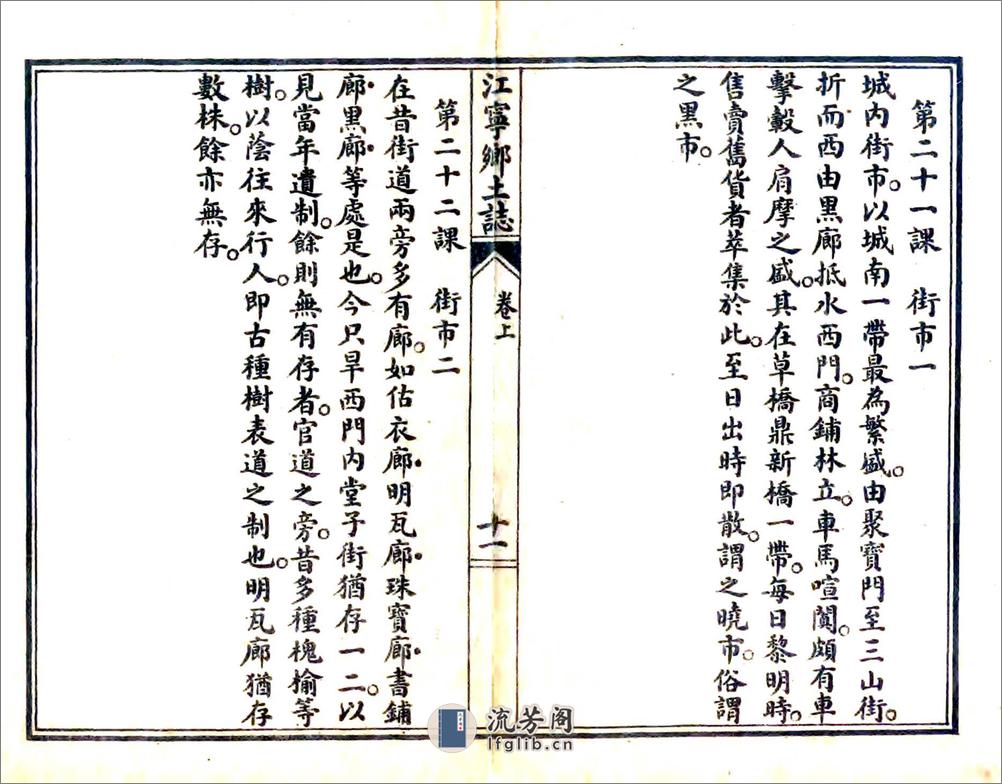 第二十一課　街市一
城内街市。以城南一帶最為繁盛。由聚寶門至三山街。
折而西由黑廊抵水西門。商鋪林立。車馬喧闐。頗有車
擊轂人肩摩之盛。其在草橋鼎新橋一帶。每日黎明時。
售賣舊貨者萃集於此。至日出時即散。謂之曉市。俗謂
之黑市。
江寧鄉土誌
卷上
十一
第二十二課　街市二
在昔街道兩旁多有廊。如估衣廊。明瓦廊。珠寶廊。書鋪
廊。黑廊等處是也。今只旱西門内堂子街猶存一二。以
見當年遺制。餘則無有存者。官道之旁。昔多種槐榆等
樹。以蔭往來行人。即古種樹表道之制也。明瓦廊猶存
數株。餘亦無存。
流芳阁
lfglib.cn